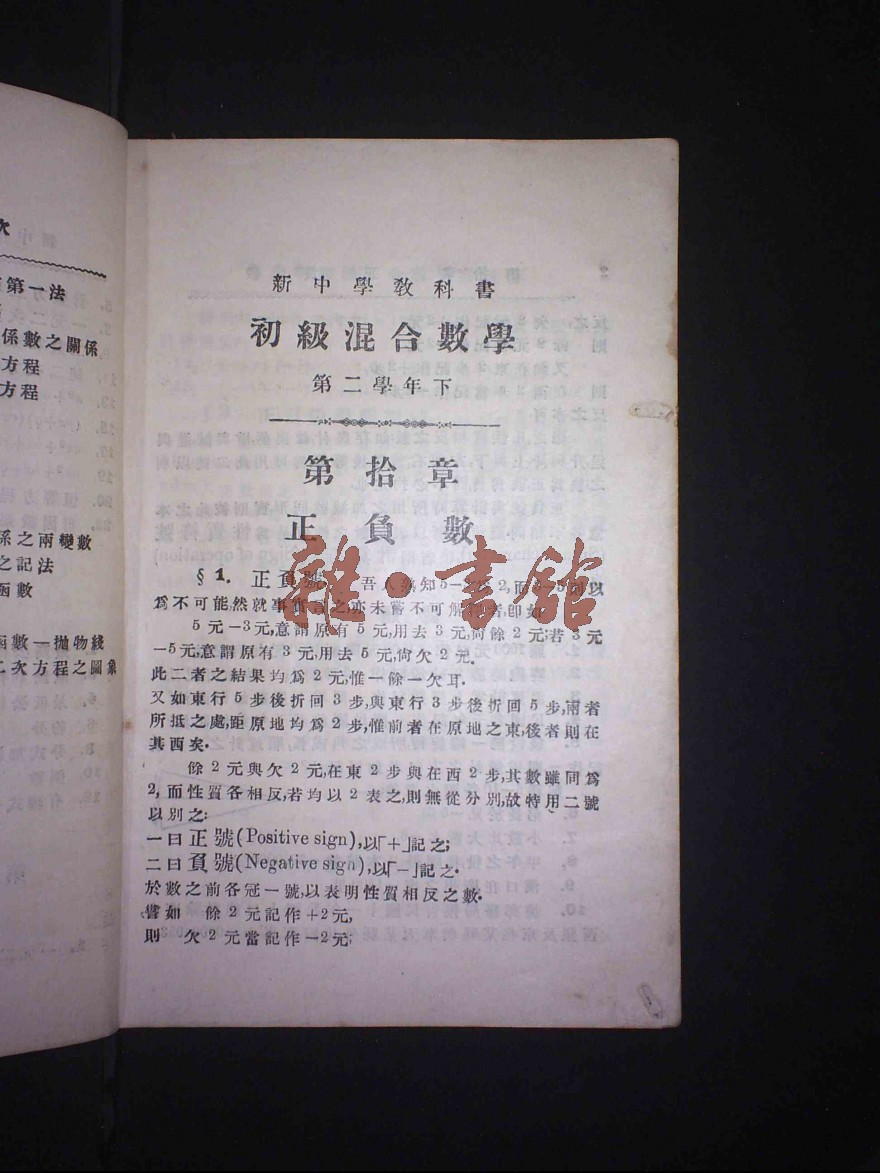 次
第一法
係數之關係
方程
方程
係之兩變數
之記法
函數
函數—拋物綫
二次方程之圖象
新中學敎科書
初級混合數學
第二學年下
第拾章
正負數
§1. 正負號 吾人爲知5-3=2,而以
爲不可能,然就事實言之,亦未嘗不可解者,卽如
5元-3元,意謂原有5元,用去3元,尙餘2元;若3元
-5元,意謂原有3元,用去5元,尙欠2元.
此二者之結果均爲2元,惟一餘一欠耳.
又如東行5步後折回3步,與東行3步後折回5步,兩者
所抵之處,距原地均爲2步,惟前者在原地之東,後者則在
其西矣.
餘2元與欠2元,在東2步與在西2步,其數雖同爲
2,而性質各相反,若均以2表之,則無從分別,故特用二號
以別之:
一曰正號(Positive sign),以「+」記之;
二曰負號(Negative sign),以「-」記之.
於數之前各冠一號,以表明性質相反之數.
譬如 餘2元記作+2元,
則 欠2元當記作-2元;
雜·書館